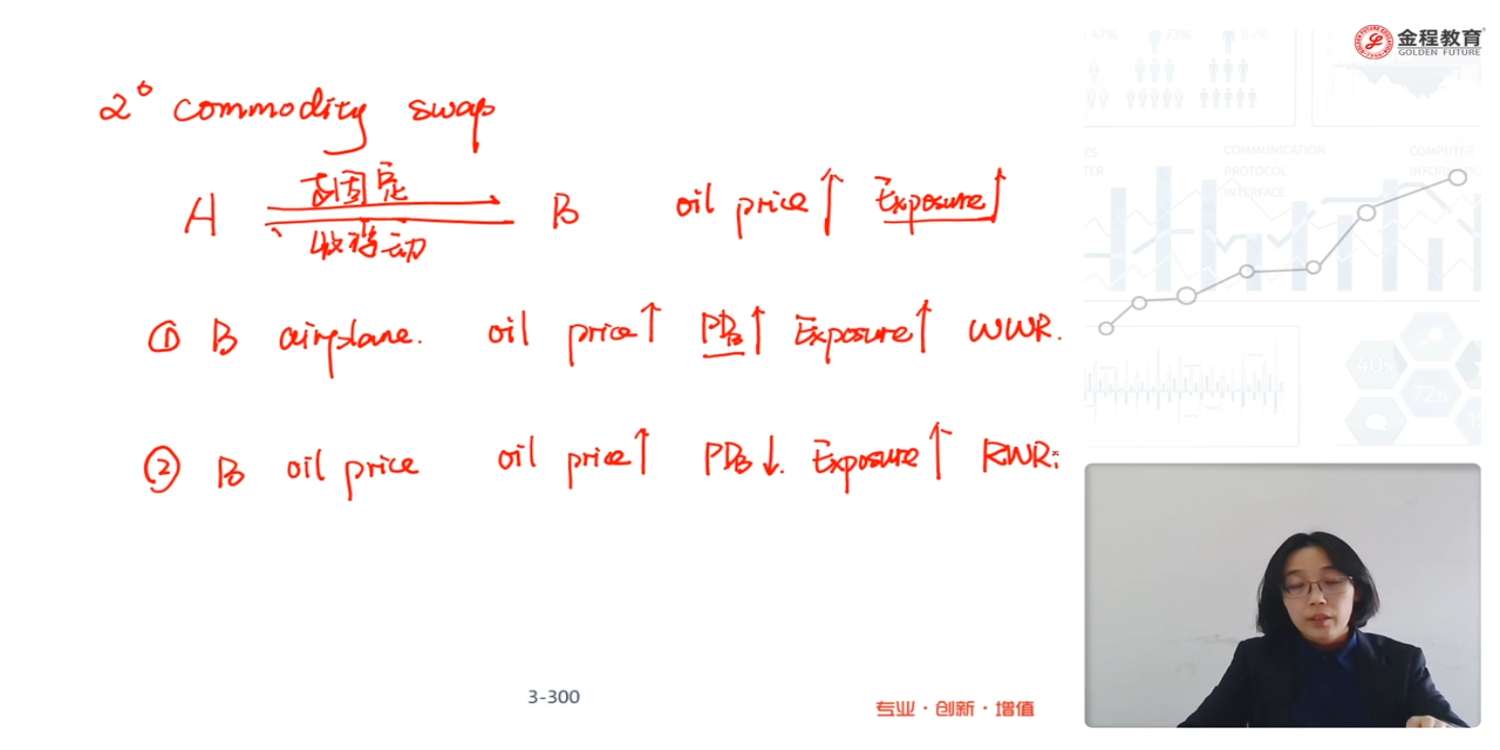 金程教育
GOLDEN FUTURE
2° commodity swap
支固定
A B oil price↑ Exposure↑
收浮动
① B airplane. oil price↑ PDB↑ Exposure↑ WWR.
② B oil price oil price↑ PDB↓. Exposure↑ RWR:
COMMUNICATION
PROTOCOL
INTERFACE
COMPUTER
40%
3-300
专业·创新·增值